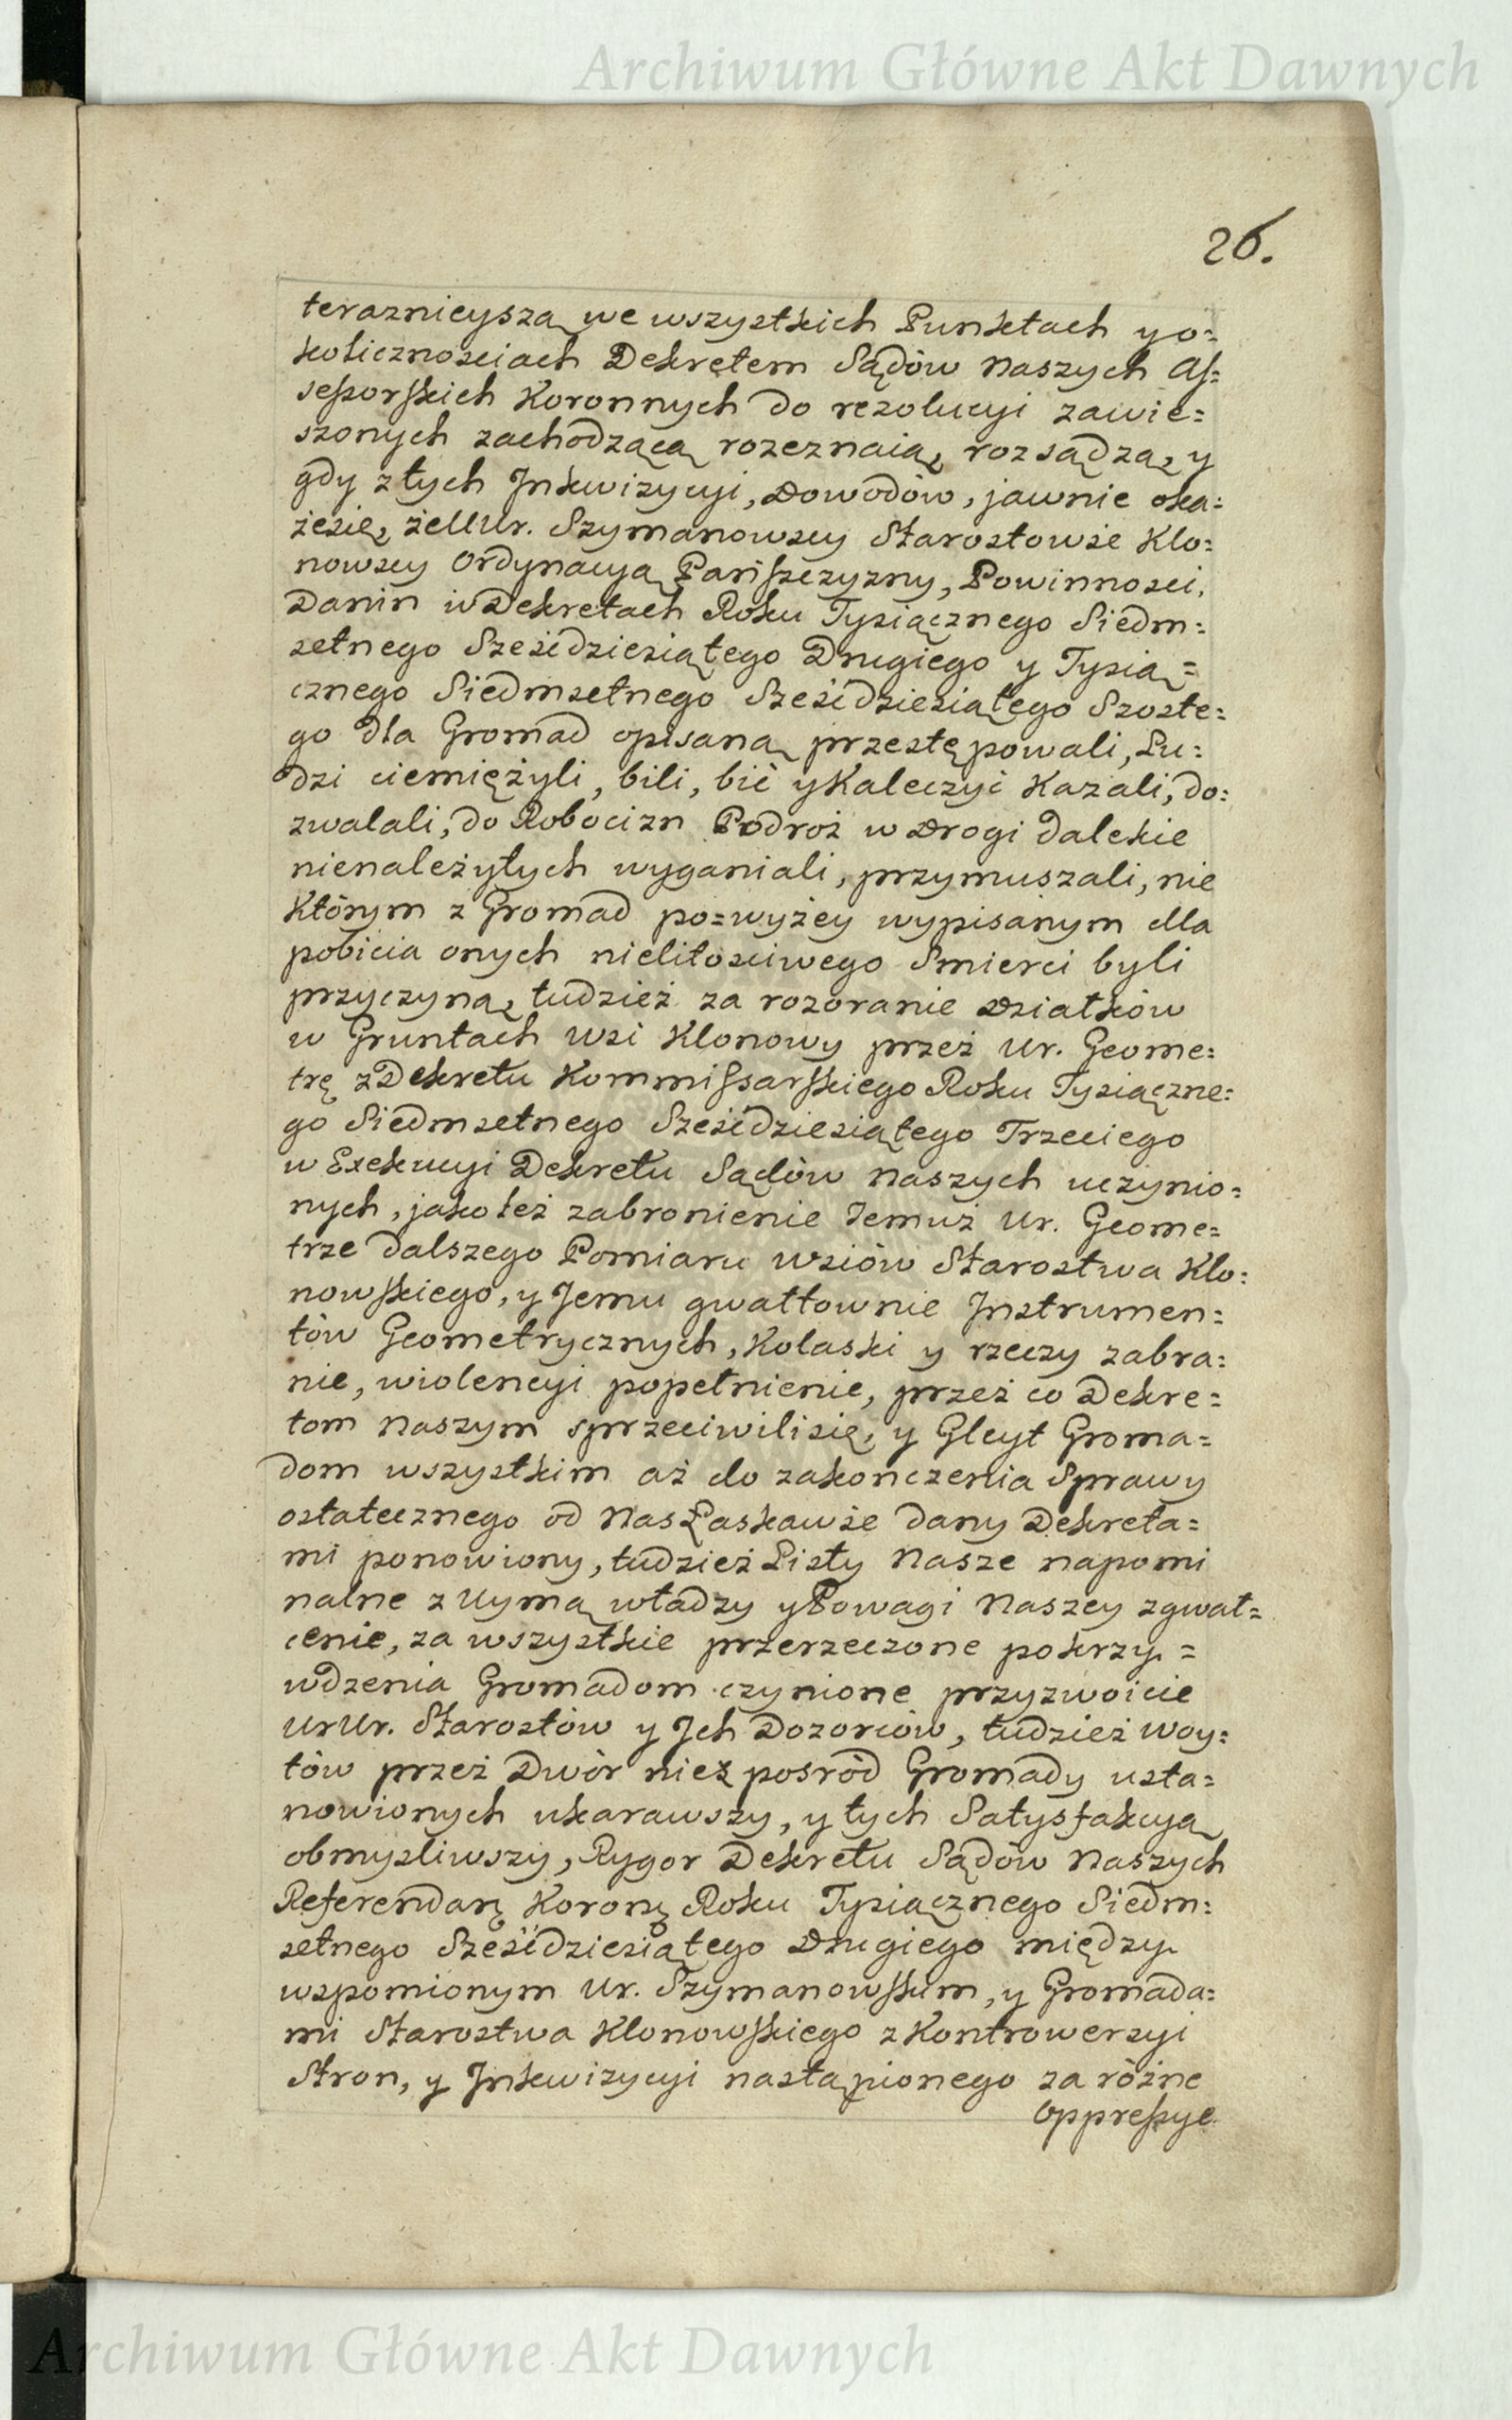 Archiwum Główne Akt Dawnych
26.
teraznieyszą we wszystkich Punktach y o=
kolicznosciach Dekretem Sądów Naszych As=
sessorskich Koronnych do rezolucyi zawie=
szonych zachodzącą rozeznaią, rozsądzą, y
gdy z tych Inkwizycyi, Dowodów, jawnie oka=
że się, że UUr. Szymanowscy Starostowie Klo=
nowscy Ordynacyą Pańszczyzny, Powinnosci,
Danin w Dekretach Roku Tysiącznego Siedm=
setnego Sześćdziesiątego Drugiego y Tysią=
cznego Siedmsetnego Sześćdziesiątego Szoste=
go dla Gromad opisaną przestępowali, Lu=
dzi ciemiężyli, bili, bić y Kaleczyć Kazali, do=
zwalali, do Robocizn Podroż w Drogi dalekie
nienależytych wyganiali, przymuszali, nie
Którym z Gromad po=wyżey wypisanym dla
pobicia onych nielitosciwego Smierci byli
przyczyną, tudzież za rozoranie Działków
w Gruntach Wsi Klonowy przeż Ur. Geome=
trę z Dekretu Kommissarskiego Roku Tysiączne=
go Siedmsetnego Sześćdziesiątego Trzeciego
w Exekucyi Dekretu Sądów Naszych uczynio=
nych, jako też zabronienie Jemuż Ur. Geome=
trze dalszego Pomiaru Wsiów Starostwa Klo=
nowskiego, y Jemu gwałtownie Instrumen=
tów Geometrycznych, Kolaski y rzeczy zabra=
nie, wiolencyi popełnienie, przeż co Dekre=
tom Naszym sprzeciwili się, y Gleyt Groma=
dom wszystkim aż do zakończenia Sprawy
ostatecznego od Nas Łaskawie dany Dekreta=
mi ponowiony, tudzież Listy Nasze napomi
nalne z Uymą władzy y Powagi Naszey zgwał=
cenie, za wszystkie przerzeczone pokrzy=
wdzenia Gromadom czynione przyzwoicie
UrUr. Starostów y Jch Dozorców, tudzież Woy=
tów przeż Dwór nie z posród Gromady usta=
nowionych ukarawszy, y tych Satysfakcyą
obmysliwszy, Rygor Dekretu Sądów Naszych
Referendarz Koronę Roku Tysiącznego Siedm=
setnego Sześćdziesiątego Drugiego między
wspomionym Ur. Szymanowskim, y Gromada=
mi Starostwa Klonowskiego z Kontrowersyi
Stron, y Inkwizycyi nastąpionego za różne
Oppressye
Archiwum Główne Akt Dawnych